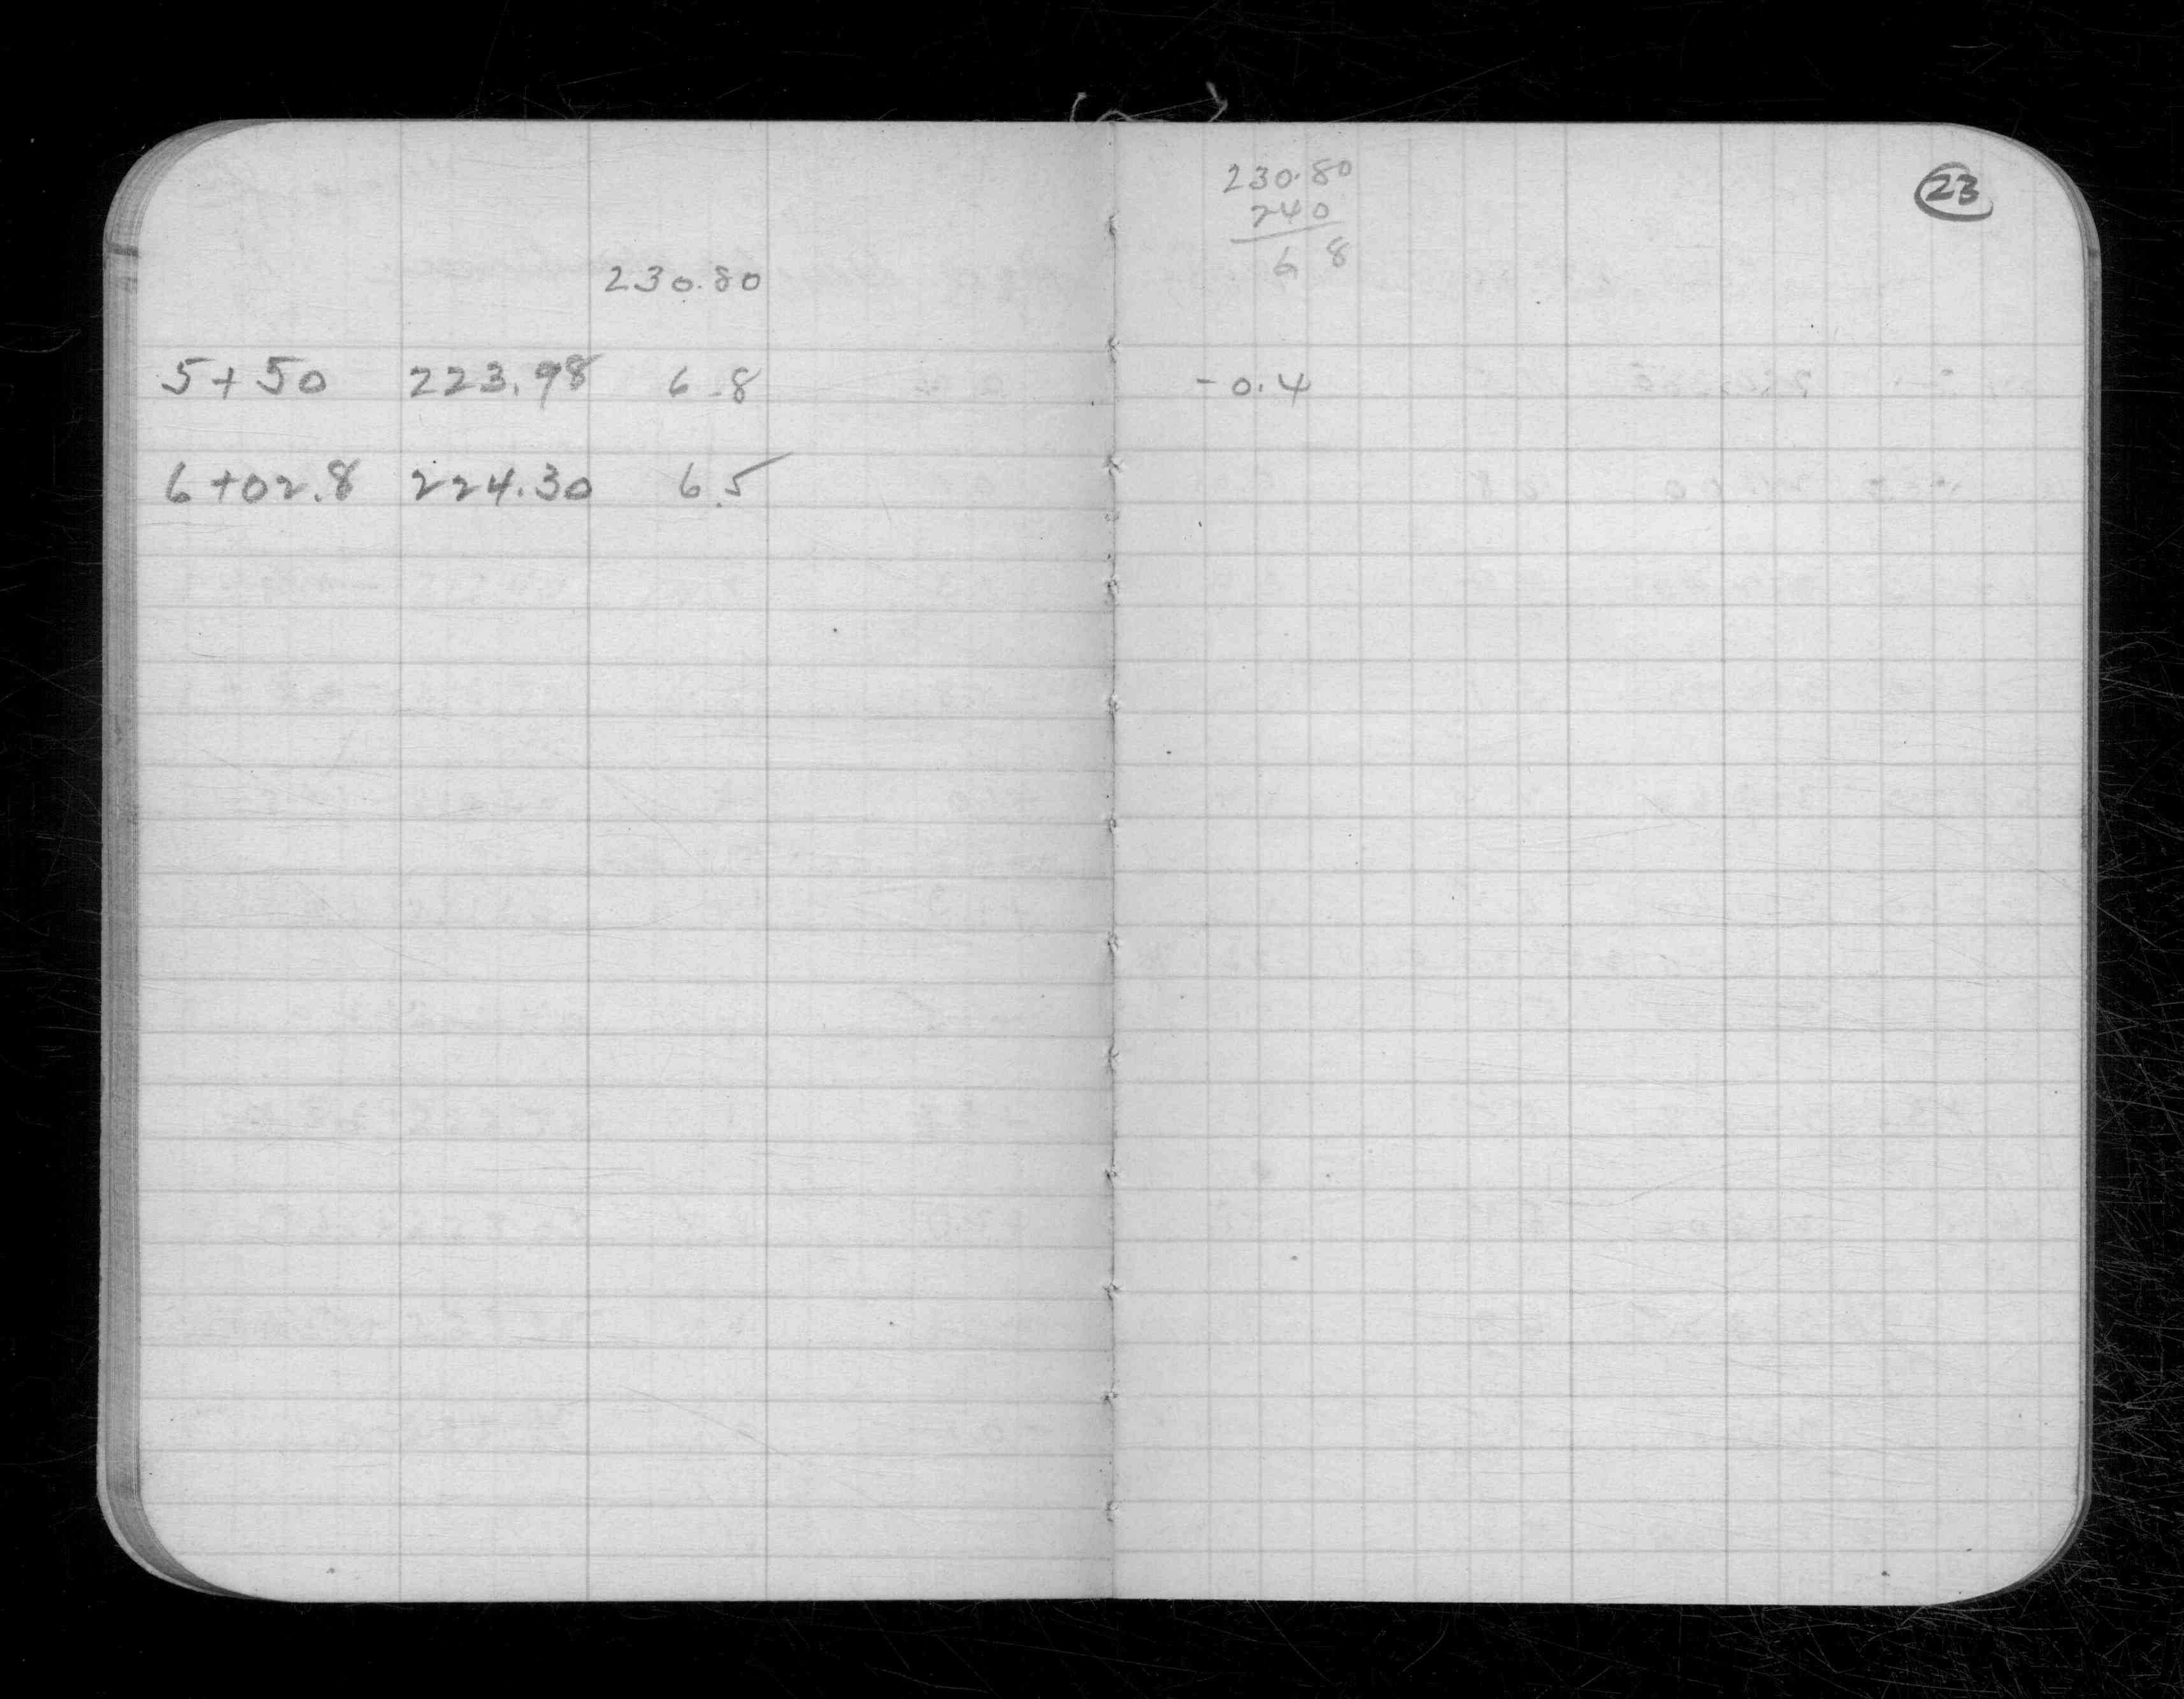 230.80
5+50 223.98 6.8
6+02.8 224.30 6.5
23
230.80
240
6 8
-0.4